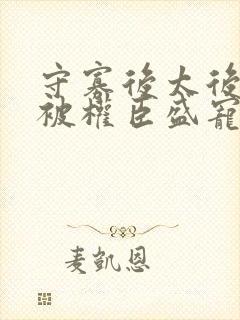 守寡後太後
被權臣盛寵
麦凱恩